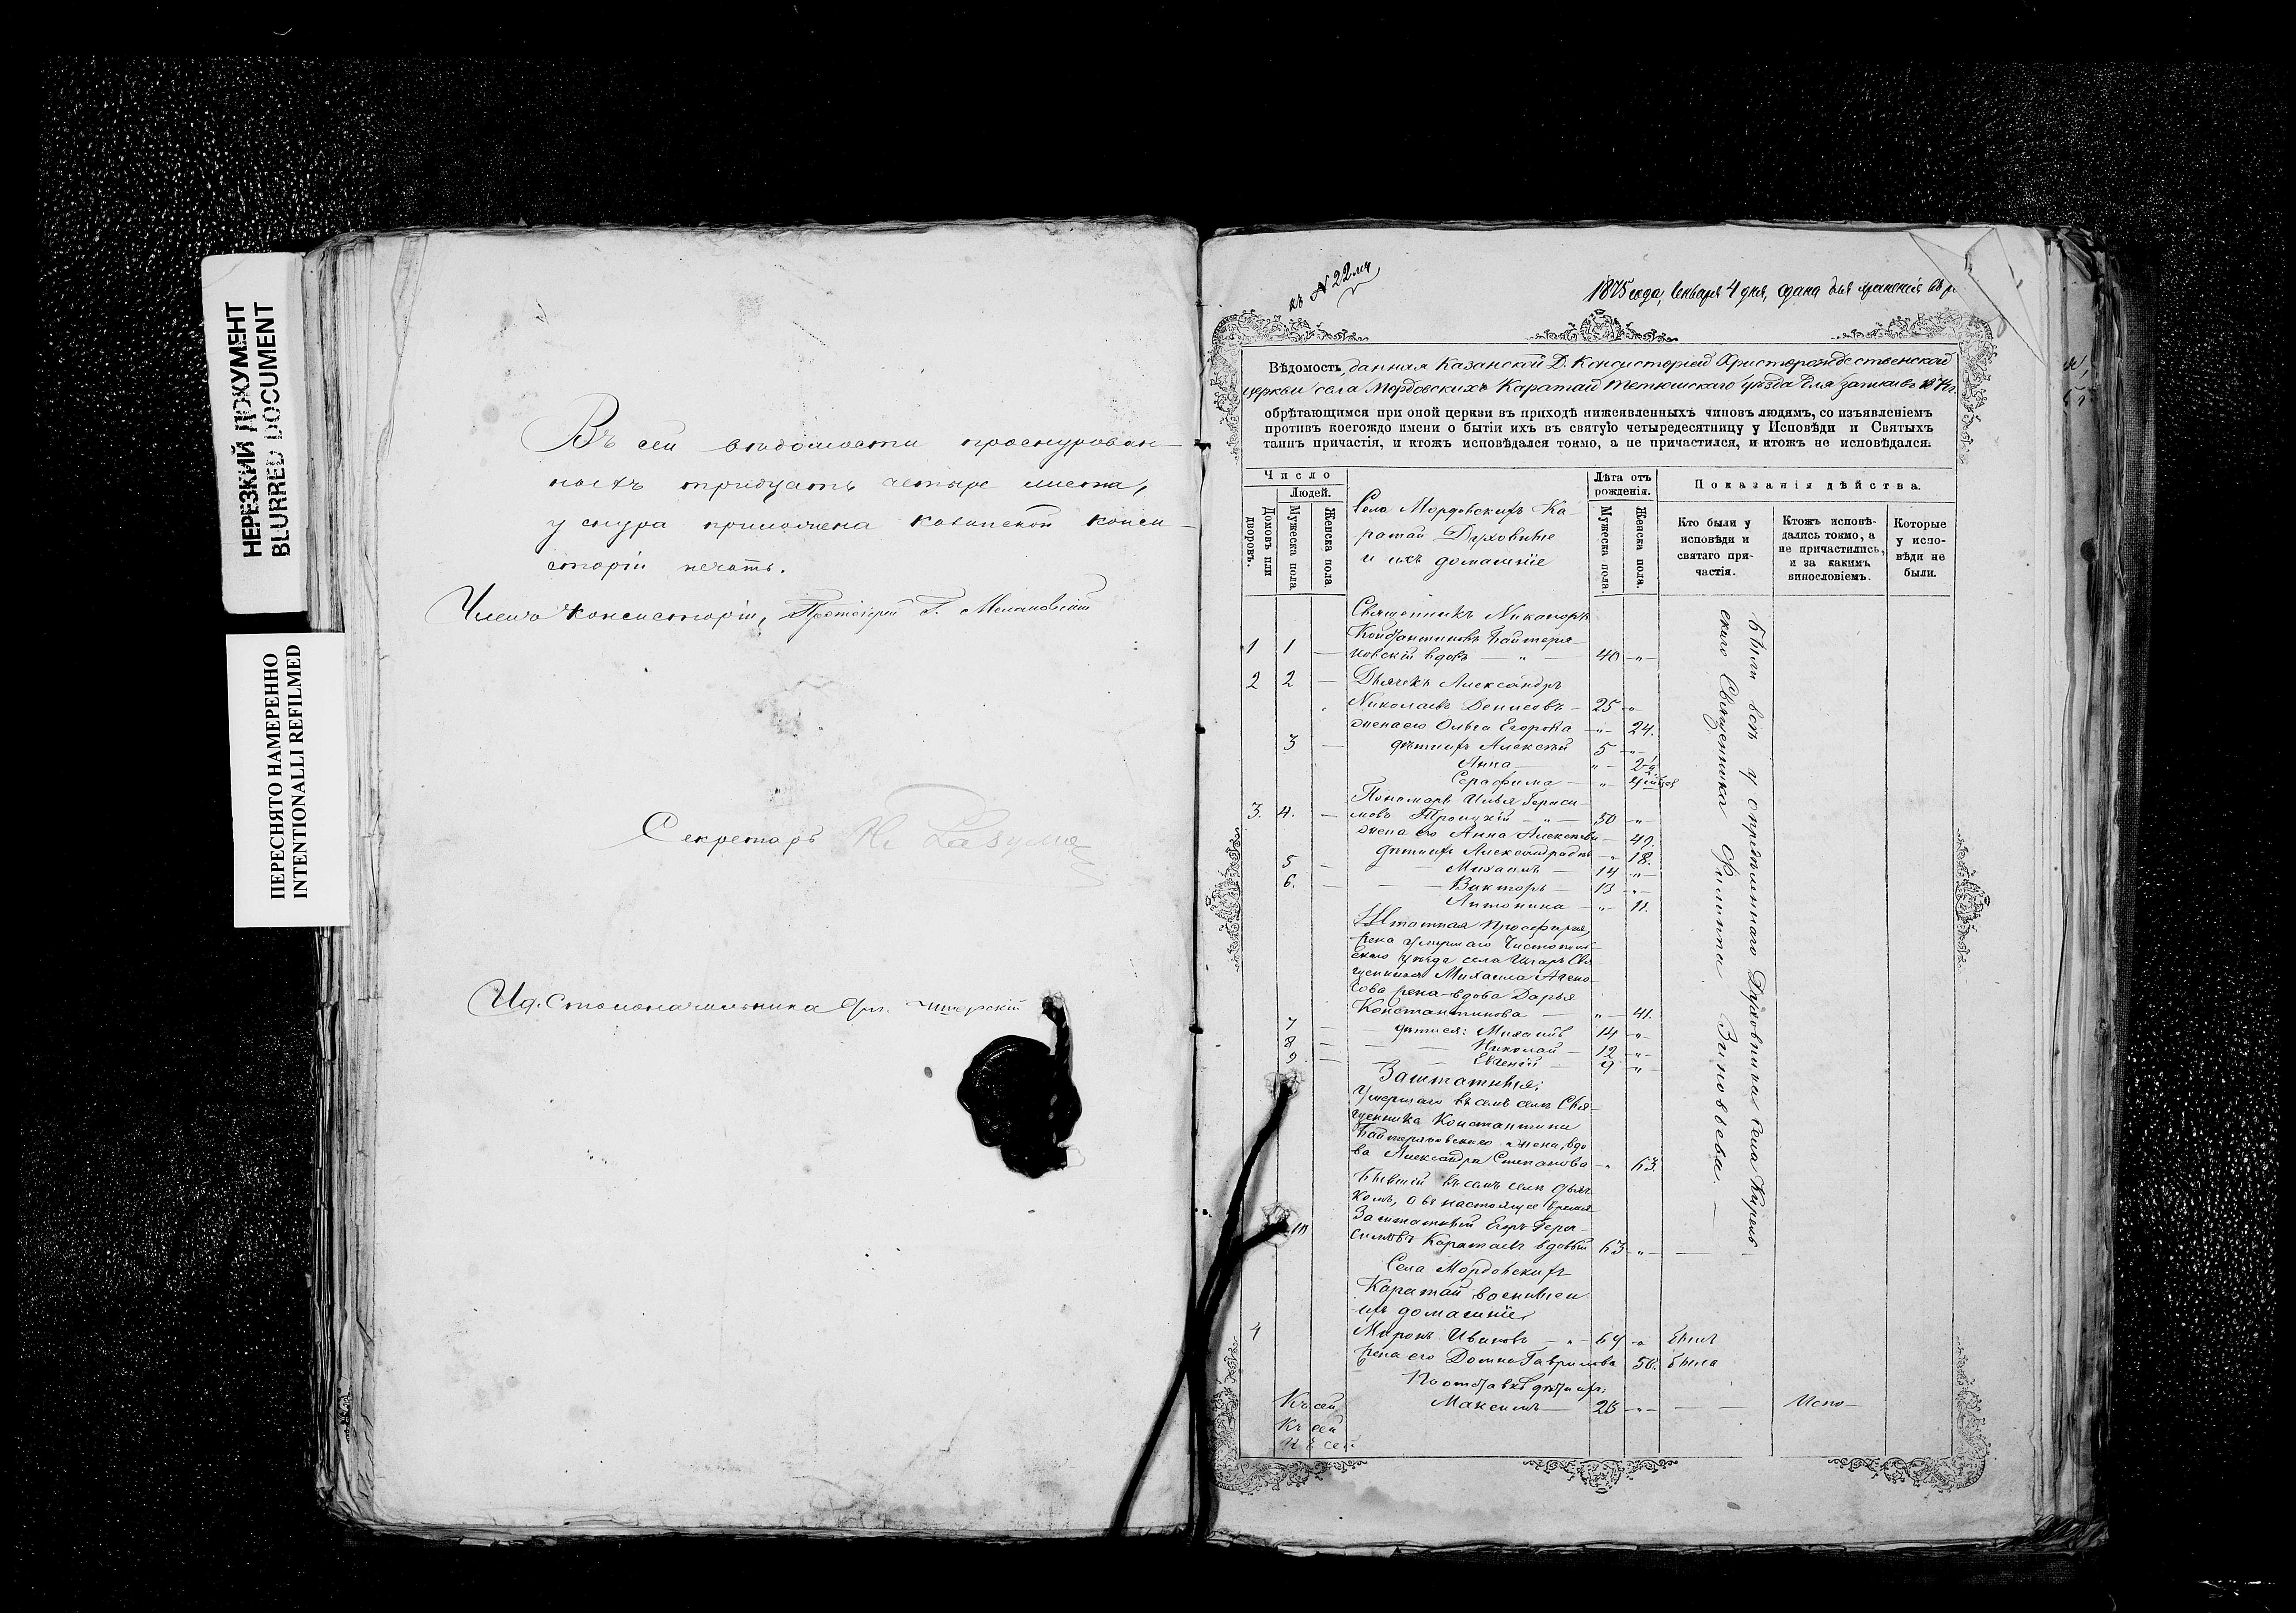 НЕРЕЗКИЙ ДОКУМЕНТ
BLURRED DOCUMENT
ПЕРЕСНЯТО НАМЕРЕННО
INTENTIONALLI REFILMED
Въ сей вѣдомости прошнурован-
ныхъ тридцать четыре листа,
у снура приложена Казанской Конси-
сторіи печать.
Членъ Консисторіи, Протоіерей
Секретарь
Ид. Столоначальника
къ № 22
1875 года, Января 4 дня, сдана для храненія въ
Вѣдомость, данная Казанской Д. Консисторіей Христорождественской
церкви села Мордовскихъ Каратай Тетюшскаго уѣзда для записи
обрѣтающимся при оной церкви въ приходѣ нижеявленныхъ чиновъ людямъ, со изъявленіемъ
противъ коегождо имени о бытіи ихъ въ святую четыредесятницу у Исповѣди и Святыхъ
таинъ причастія, и ктожъ исповѣдался токмо, а не причастился, и ктожъ не исповѣдался.
Число
Людей.
Домовъ или дворовъ.
Мужеска пола.
Женска пола.
Села Мордовскихъ Ка-
ратай Духовные
и ихъ домашніе
Лѣта отъ рожденія.
Мужеска пола.
Женска пола.
Показанія дѣйства.
Кто были у исповѣди и святаго при-частія.
Ктожъ исповѣ-дались токмо, а не причастились, и за какимъ винословіемъ.
Которые у испо-вѣди не были.
Священникъ Никаноръ
Константиновъ Байтеря-
1 1 — ковскій вдовъ — 40 —
2 2 — Дьячекъ Александръ
Николаевъ Денисовъ — 25 —
жена его Ольга Егорова — 24.
3 — дѣти ихъ Алексѣй 5 —
Анна —
Серафима —
Пономарь Илья Гераси-
3. 4. — мовъ Троицкій — 50 —
жена его Анна Алексѣева — 49.
дѣти ихъ Александра — 18.
5 — Михаилъ — 14 —
6. — Викторъ — 13 —
Антонина — 11.
Штатная Просфирня,
жена умершаго Чистополь-
скаго уѣзда села Свя-
щенника Михаила
жена-вдова Дарья
Константинова — 41.
7 — дѣти ея: Михаилъ 14 —
8 — Николай — 12 —
9 — Евгеній — 9 —
Заштатныя:
Умершаго въ семъ селѣ Свя-
щенника Константина
Байтеряковскаго жена, вдо-
ва Александра Степанова — 63.
Бывшій въ семъ селѣ дьяч-
комъ, а въ настоящее время
Заштатный Егоръ Гера-
10 симовъ Каратаевъ вдовый 63 —
Были всѣ у опредѣленнаго Духовника Села Кирель-
скаго Священника Филиппа Зиновьева. —
Села Мордовскихъ
Каратай военные и
ихъ домашніе
4 Миронъ Ивановъ — 64 былъ
жена его Домна Гаврилова 50. была
По отставкѣ дѣти ихъ:
Къ сей Максимъ — 23 — Испо—
Къ сей
Къ сей